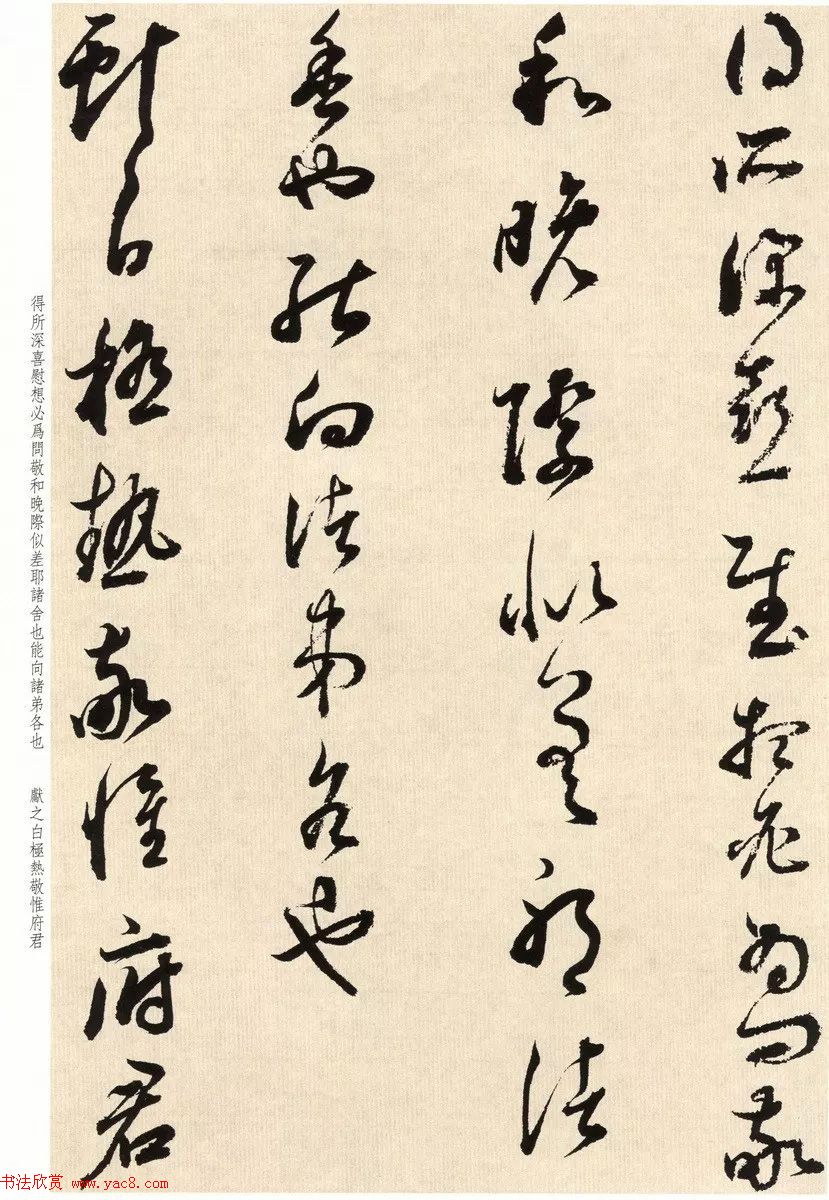 得所深喜慰想必爲問敬
和晚際似差耶諸
舍也能向諸弟各也
獻之白極熱敬惟府君
得所深喜慰想必爲問敬和晚際似差耶諸舍也能向諸弟各也 獻之白極熱敬惟府君
书法欣赏 www.yac8.com